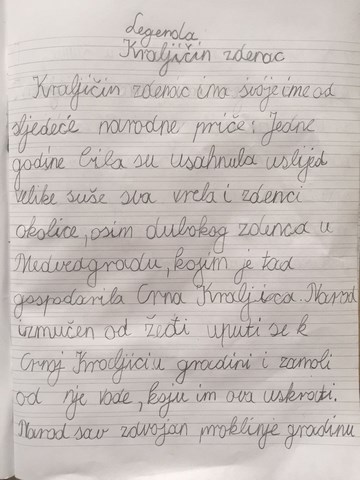 Legenda
Kraljičin zdenac
Kraljičin zdenac ima svoje ime od
sljedeće narodne priče: Jedne
godine bila su usahnula uslijed
velike suše sva vrela i zdenci
okolice, osim dubokog zdenca u
Medvedgradu, kojim je tad
gospodarila Crna Kraljica. Narod
izmučen od žeđi uputi se k
Crnoj Kraljiciu gradini i zamoli
od nje vode, koju im ova uskrati.
Narod sav zdvojan proklinje gradinu